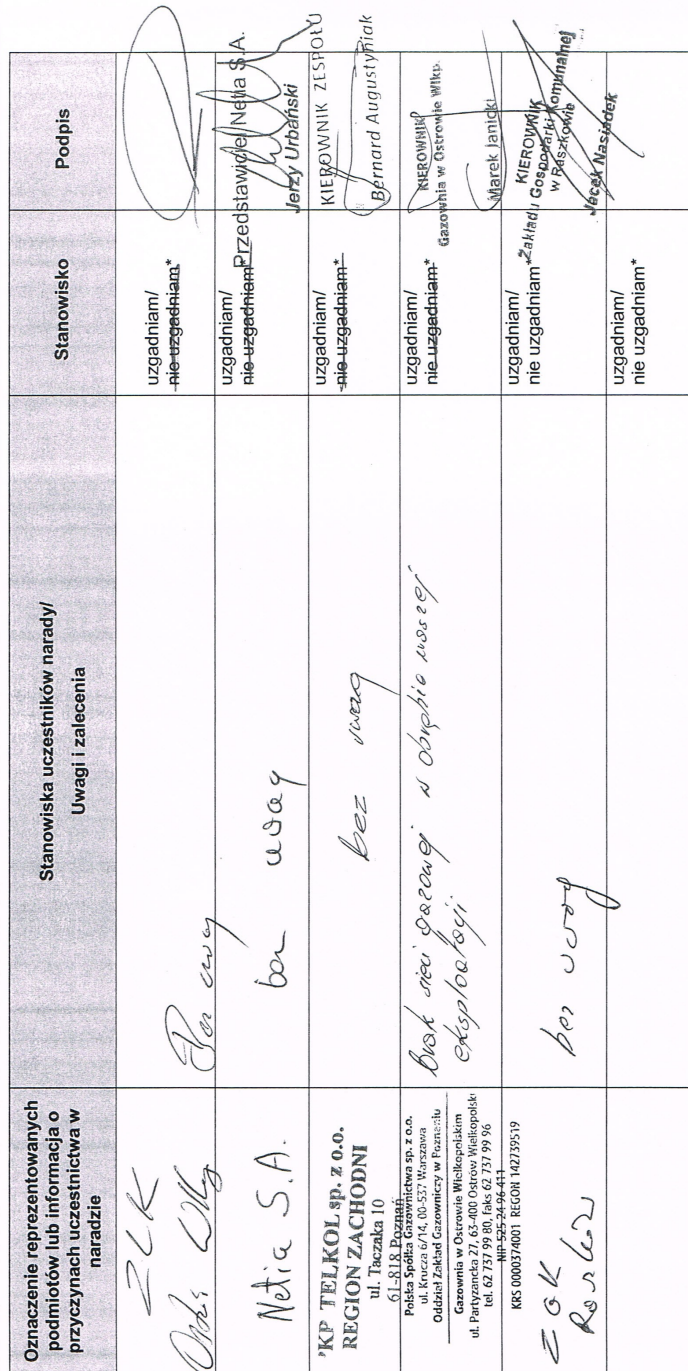 Oznaczenie reprezentowanych
podmiotów lub informacja o
przyczynach uczestnictwa w
naradzie
Stanowiska uczestników narady/
Uwagi i zalecenia
Stanowisko
Podpis
uzgadniam/
nie uzgadniam*
Netia S.A.
bez uwag
uzgadniam/
nie uzgadniam*
Przedstawiciel Netia S.A.
Jerzy Urbański
PKP TELKOL sp. z o.o.
REGION ZACHODNI
ul. Taczaka 10
61-818 Poznań
bez uwag
uzgadniam/
nie uzgadniam*
KIEROWNIK ZESPOŁU
Bernard Augustyniak
Polska Spółka Gazownictwa sp. z o.o.
ul. Krucza 6/14, 00-537 Warszawa
Oddział Zakład Gazowniczy w Poznaniu
Gazownia w Ostrowie Wielkopolskim
ul. Partyzancka 27, 63-400 Ostrów Wielkopolski
tel. 62 737 99 80, faks 62 737 99 96
NIP 525 24 96 411
KRS 0000374001 REGON 142739519
Brak sieci gazowej w obrębie naszej
eksploatacji
uzgadniam/
nie uzgadniam*
KIEROWNIK
Gazownia w Ostrowie Wlkp.
Marek Janicki
bez uwag
uzgadniam/
nie uzgadniam*
KIEROWNIK
Zakładu Gospodarki Komunalnej
w Raszkowie
Jacek Nasiadek
uzgadniam/
nie uzgadniam*